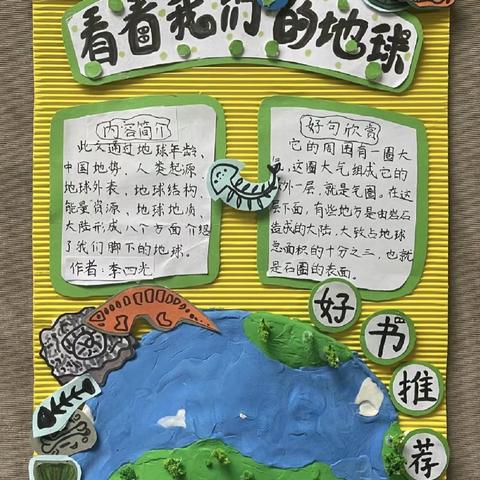 看看我们的地球
内容简介
此文通过地球年龄、
中国地势、人类起源
地球外表、地球结构
能量资源、地球地质、
大陆形成八个方面介绍
了我们脚下的地球。
作者:李四光
好句欣赏
它的周围有一圈大
气,这圈大气组成它的
外一层,就是气圈。在这
层下面,有些地方是由岩石
造成的大陆,大致占地球
总面积的十分之三,也就
是石圈的表面。
好
书
推
荐